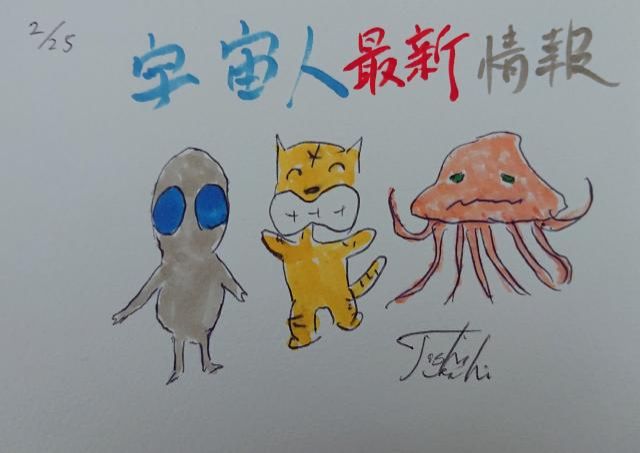 2/25
宇宙人最新情報